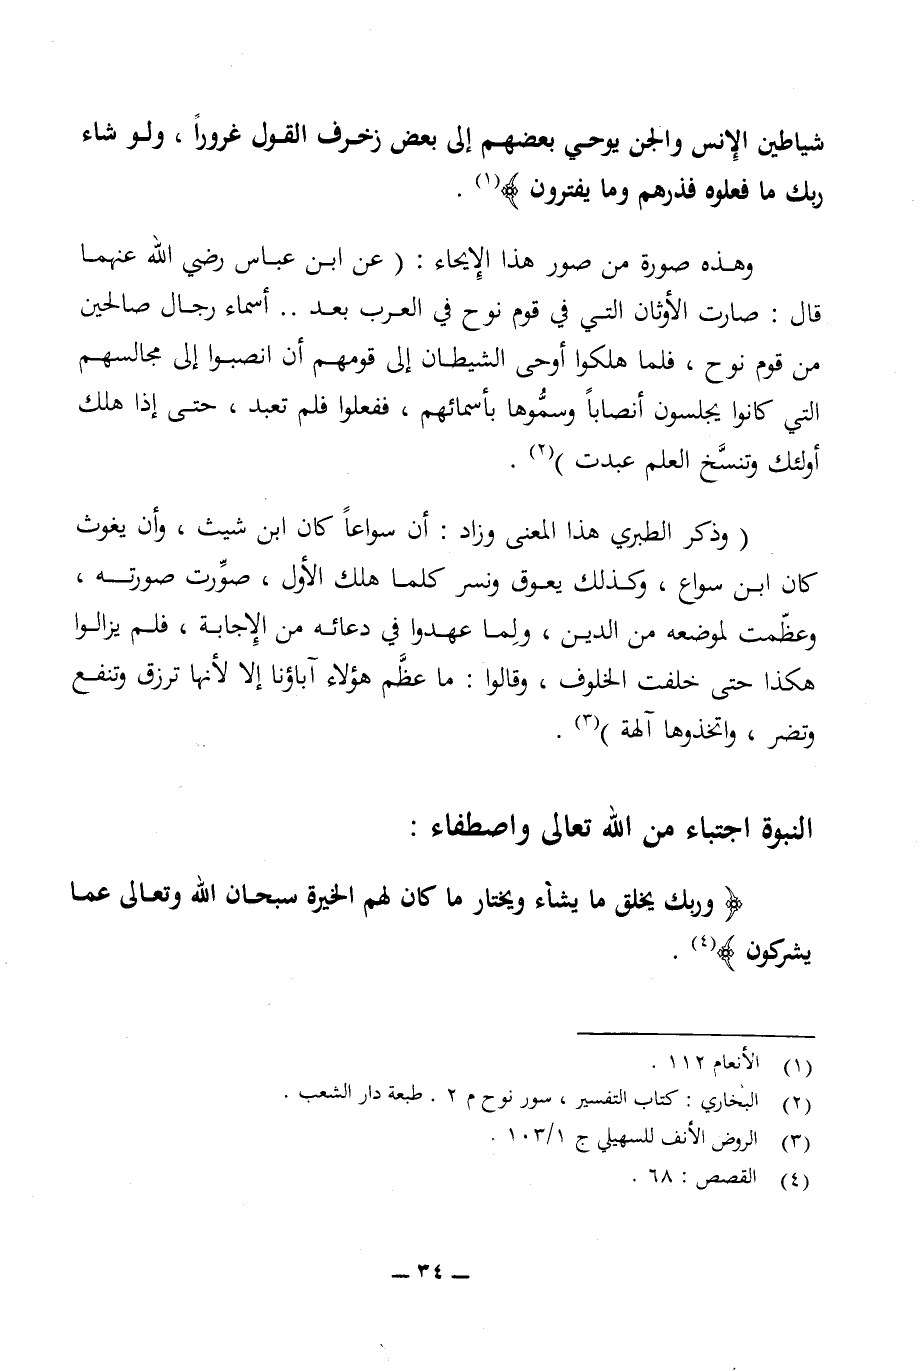 شياطين الإنس والجن يوحي بعضهم إلى بعض زخرف القول غروراً ، ولو شاء
ربك ما فعلوه فذرهم وما يفترون ﴾(١) .
وهذه صورة من صور هذا الإيحاء : ( عن ابن عباس رضي الله عنهما
قال : صارت الأوثان التي في قوم نوح في العرب بعد .. أسماء رجال صالحين
من قوم نوح ، فلما هلكوا أوحى الشيطان إلى قومهم أن انصبوا إلى مجالسهم
التي كانوا يجلسون أنصاباً وسمُّوها بأسمائهم ، ففعلوا فلم تعبد ، حتى إذا هلك
أولئك وتنسَّخ العلم عبدت )(٢) .
( وذكر الطبري هذا المعنى وزاد : أن سواعاً كان ابن شيث ، وأن يغوث
كان ابن سواع ، وكذلك يعوق ونسر كلما هلك الأول ، صوِّرت صورته ،
وعظّمت لموضعه من الدين ، ولِما عهدوا في دعائه من الإجابة ، فلم يزالوا
هكذا حتى خلفت الخلوف ، وقالوا : ما عظَّم هؤلاء آباؤنا إلا لأنها ترزق وتنفع
وتضر ، واتخذوها آلهة )(٣) .
النبوة اجتباء من الله تعالى واصطفاء :
﴿ وربك يخلق ما يشاء ويختار ما كان لهم الخيرة سبحان الله وتعالى عما
يشركون ﴾(٤) .
(١) الأنعام ١١٢ .
(٢) البخاري : كتاب التفسير ، سور نوح م ٢ . طبعة دار الشعب .
(٣) الروض الأنف للسهيلي ج ١٠٣/١ .
(٤) القصص : ٦٨ .
– ٣٤ –